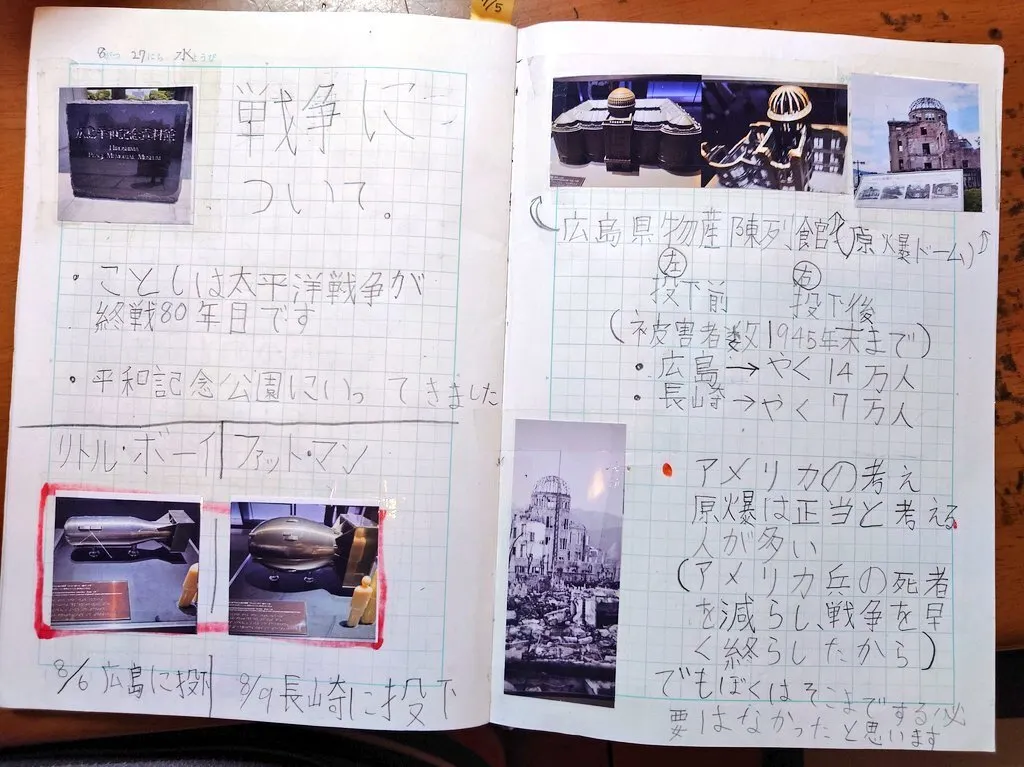 8がつ 27にち 水ようび
広島平和記念資料館
HIROSHIMA
PEACE MEMORIAL MUSEUM
戦争に
ついて。
・ことしは太平洋戦争が
終戦80年目です
・平和記念公園にいってきました
リトル・ボーイ
ファット・マン
8/6 広島に投下
8/9 長崎に投下
7/5
(広島県物産陳列館)(原爆ドーム)
左 右
投下前 投下後
(被害者数1945年末まで)
・広島→やく14万人
・長崎→やく7万人
・アメリカの考え
原爆は正当と考える
人が多い
(アメリカ兵の死者
を減らし、戦争を早
く終らしたから)
でもぼくはそこまでする必
要はなかったと思います